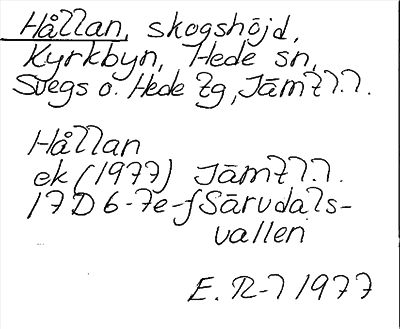 Hållan, skogshöjd,
Kyrkbyn, Hede sn,
Svegs o. Hede tg, Jämtl.l.
Hållan
ek (1977) Jämtl.l.
17D 6-7e-f Särvdals-
vallen
E. R-l 1977